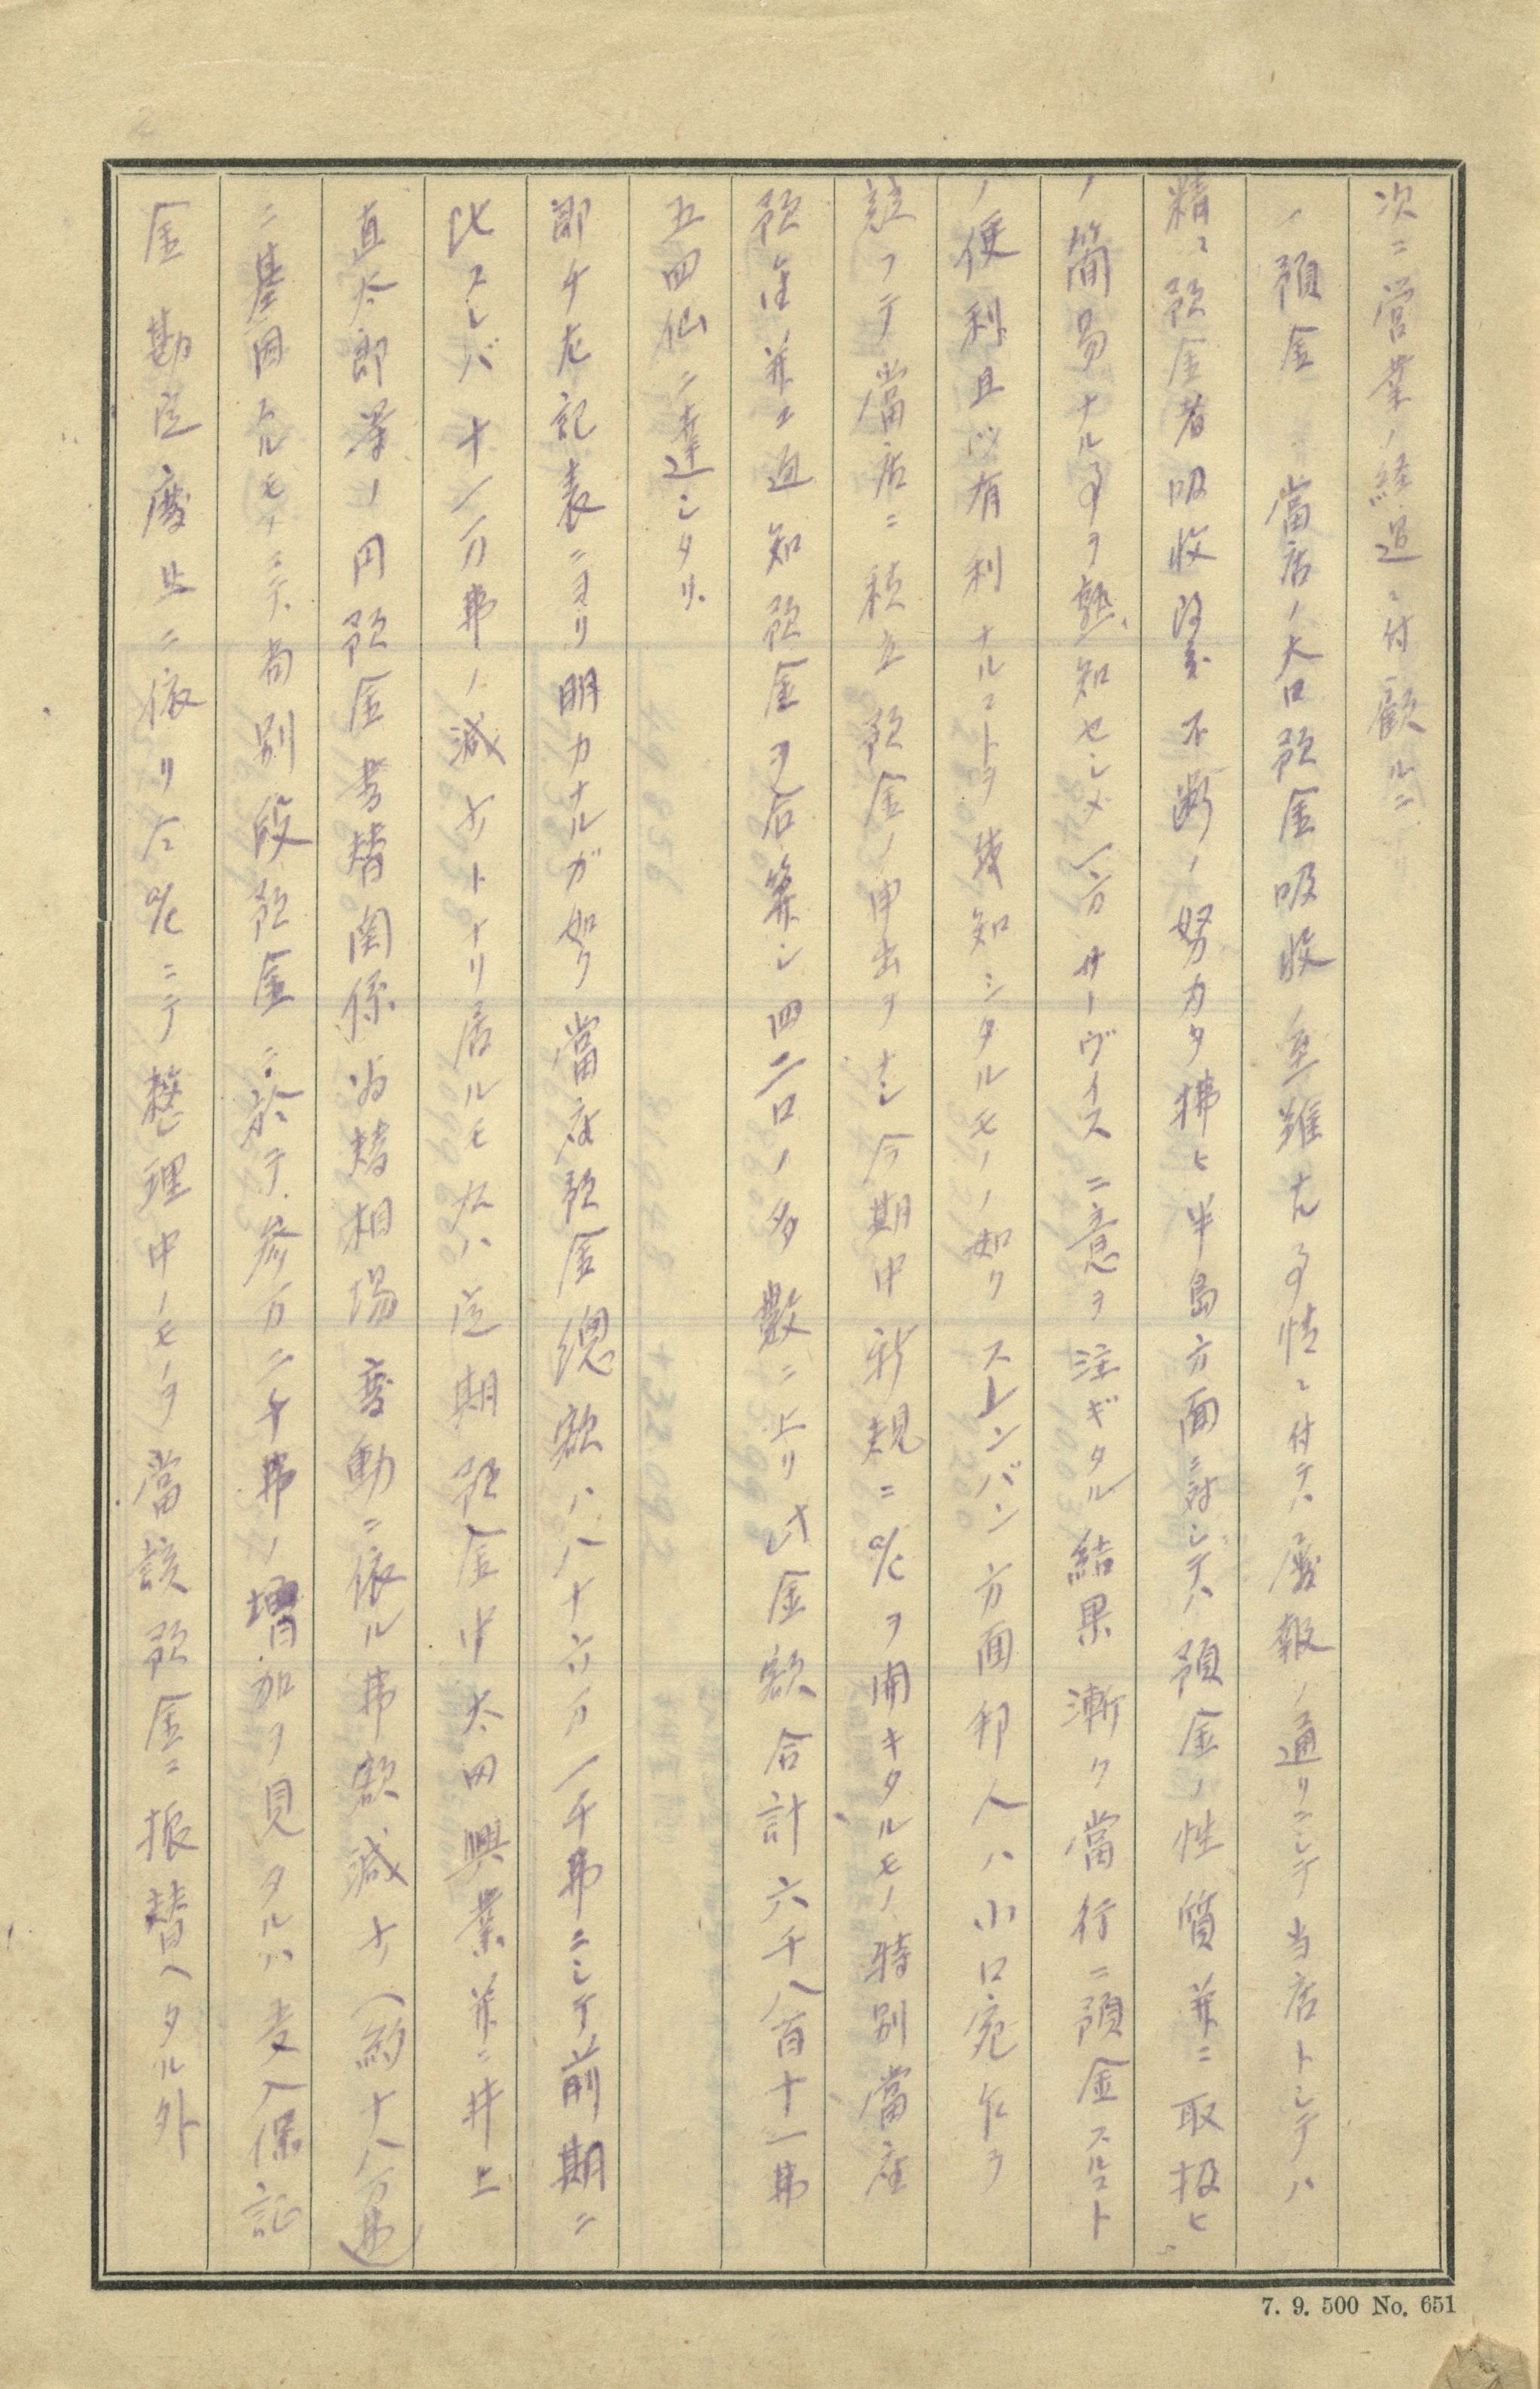 次ニ営業ノ経過ニ付顧ルニ
一、預金 當店ノ大口預金吸收ノ至難ナル事情ニ付テハ屡報ノ通リニシテ当店トシテハ
精々預金者吸收ニ不断ノ努力ヲ拂ヒ半島方面ニ対シテハ預金ノ性質並ニ取扱ヒ
ノ簡易ナル事ヲ熟知セシメ一方サーヴイスニ意ヲ注ギタル結果漸ク當行ニ預金スルコト
ノ便利且ツ有利ナルコトヲ識知シタルモノノ如クスレンバン方面邦人ハ小口宛乍ラ
競フテ當店ニ積立預金ノ申出ヲナシ今期中新規ニa/cヲ開キタルモノ特別當座
預金並ニ通知預金ヲ合算シ四二口ノ多数ニ上リ此金額合計六千八百十一弗
五四仙ニ達シタリ.
即チ左記表ニヨリ明カナルガ如ク當店預金總額ハ八十六万一千弗ニシテ前期ニ
比スレバ十一万弗ノ減少トナリ居ルモ右ハ定期預金中太田興業並ニ井上
直太郎等ノ円預金者替関係為替相場変動ニ依ル弗額減少(約十八万弗)
ニ基因スルモノニテ、尚別段預金ニ於テ参万二千弗ノ増加ヲ見タルハ支入保証
金勘定廃止ニ依リ仝a/cニテ整理中ノモノヲ當該預金ニ振替ヘタル外
7. 9. 500 No. 651